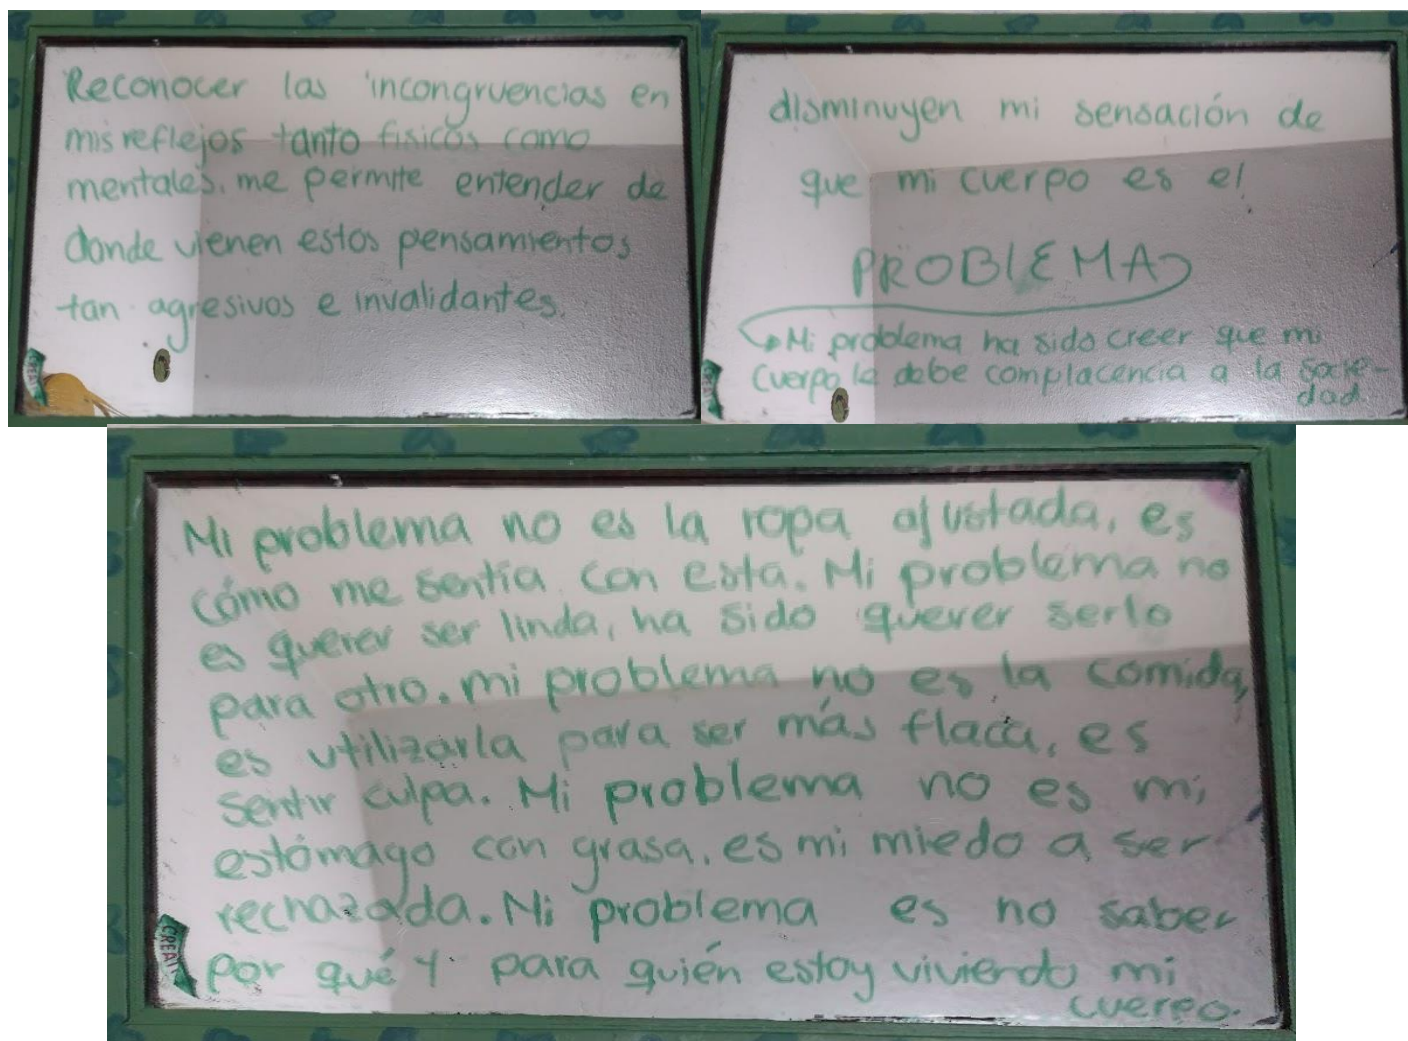 Reconocer las incongruencias en
mis reflejos tanto físicos como
mentales, me permite entender de
donde vienen estos pensamientos
tan agresivos e invalidantes.
disminuyen mi sensación de
que mi cuerpo es el
PROBLEMA
Mi problema ha sido creer que mi
cuerpo le debe complacencia a la socie-
dad.
Mi problema no es la ropa ajustada, es
cómo me sentía con esta. Mi problema no
es querer ser linda, ha sido querer serlo
para otro. mi problema no es la comida,
es utilizarla para ser más flaca, es
sentir culpa. Mi problema no es mi
estómago con grasa, es mi miedo a ser
rechazada. Mi problema es no saber
por qué y para quién estoy viviendo mi
cuerpo.